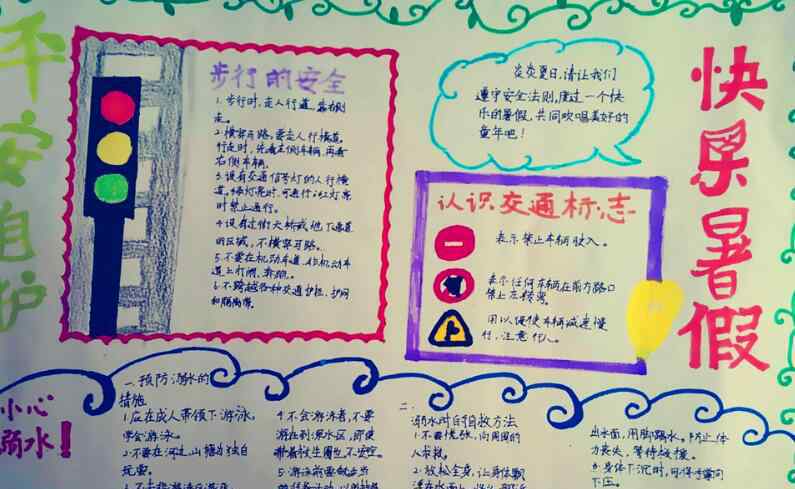 平安自护
步行的安全
1.步行时,走人行道,靠右侧
走。
2.横穿马路,要走人行横道,
行走时,先看左侧车辆,再看
右侧车辆。
3.没有交通信号灯的人行横
道,绿灯亮时,可通行;红灯亮
时禁止通行。
4.设有过街天桥或地下通道
的区域,不横穿马路。
5.不要在机动车道、非机动车
道上打闹、奔跑。
6.不跨越各种交通护栏、护网
和隔离带。
炎炎夏日,请让我们
遵守安全法则,度过一个快
乐的暑假,共同欢唱美好的
童年吧!
认识交通标志
表示禁止车辆驶入。
表示任何车辆在前方路口
禁止左转弯。
用以促使车辆减速慢
行,注意行人。
快乐暑假
小心
溺水!
一、预防溺水的
措施
1.应在成人带领下游泳,
学会游泳。
2.不要在河边、山塘边独自
玩耍。
4.不会游泳者,不要
游在到深水区,即使
带着救生圈也不安全。
5.游泳前要做适当
二、
溺水时自自救方法
1.不要慌张,向周围的
人求救。
2.放松全身,让身体飘
出水面,用脚踢水,防止体
力丧失,等待救援。
3.身体下沉时,可将手掌向
下压。